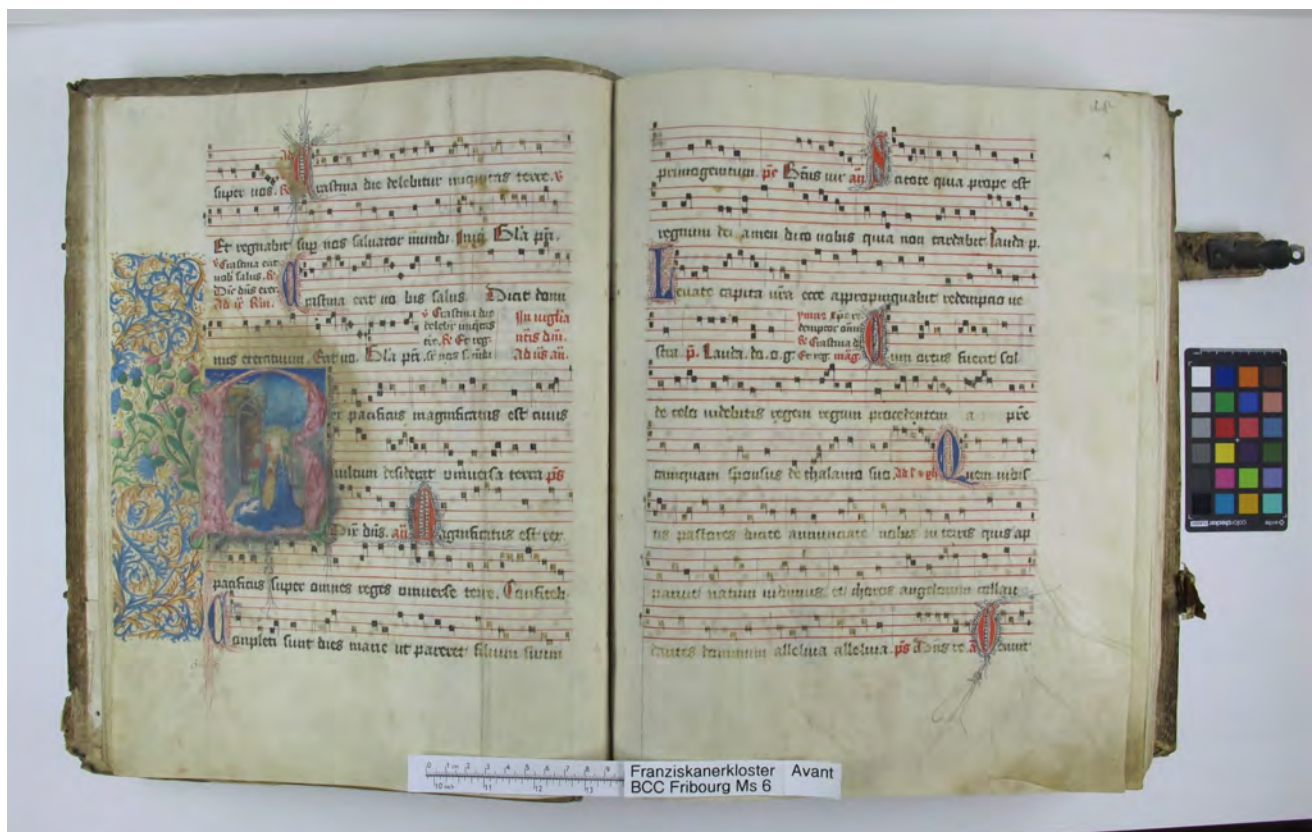 super vos. Crastina die delebitur iniquitas terre. v
Et regnabit sup nos salvator mundi. Gla pri.
v Crastina erit
vob salus. R
Dic dns exer
Crastina erit vo bis salus Dicit domi
v Crastina die
delebit iniquitas
In vigilia
nus exercituum. Erit vo. Gla pri.
ex pacificus magnificatus est cuius
vultum desiderat universa terra ps
Dix dns. an Magnificatus est rex
pacificus super omnes reges universe terre.
Conpleti sunt dies marie ut pareret filium suum
primogenitum. ps Btus vir an Scitote quia prope est
regnum dei amen dico vobis quia non tardabit lauda p.
Levate capita vra ecce appropinquabit redempcio ve
demptor omi
R Crastina d
stra. p. Lauda. do. o. g. Et reg. mag Cum ortus fuerit sol
de celo videbitis regem regum procedentem a pre
tamquam sponsus de thalamo suo. Quem vidis
tis pastores dicite annunciate nobis in terris quis ap
paruit natum vidimus et choros angelorum collau
dantes dominum alleluia alleluia. ps Dns re. a
Franziskanerkloster Avant
BCC Fribourg Ms 6